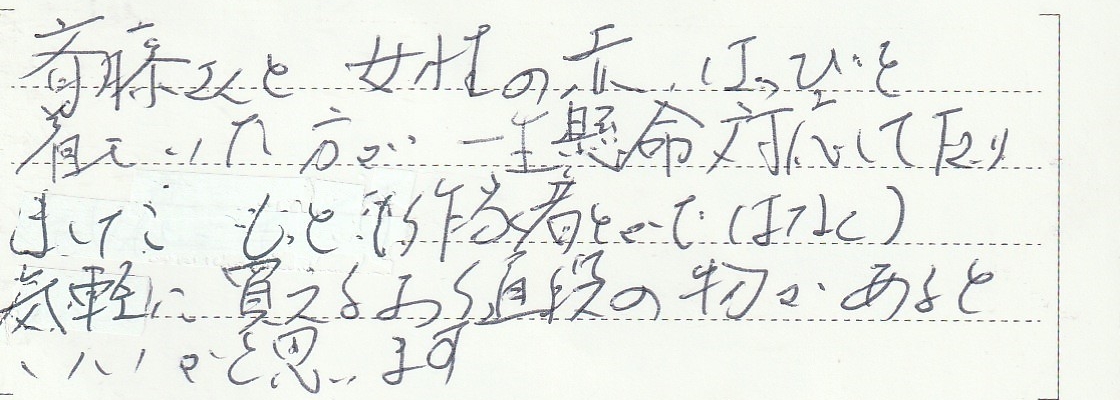 斉藤さんと 女性の赤いはっぴを
着ていた方が一生懸命対応して下さり
ました もっと(作家者とかではなく)
気軽に買えるお値段の物があると
いいかと思います